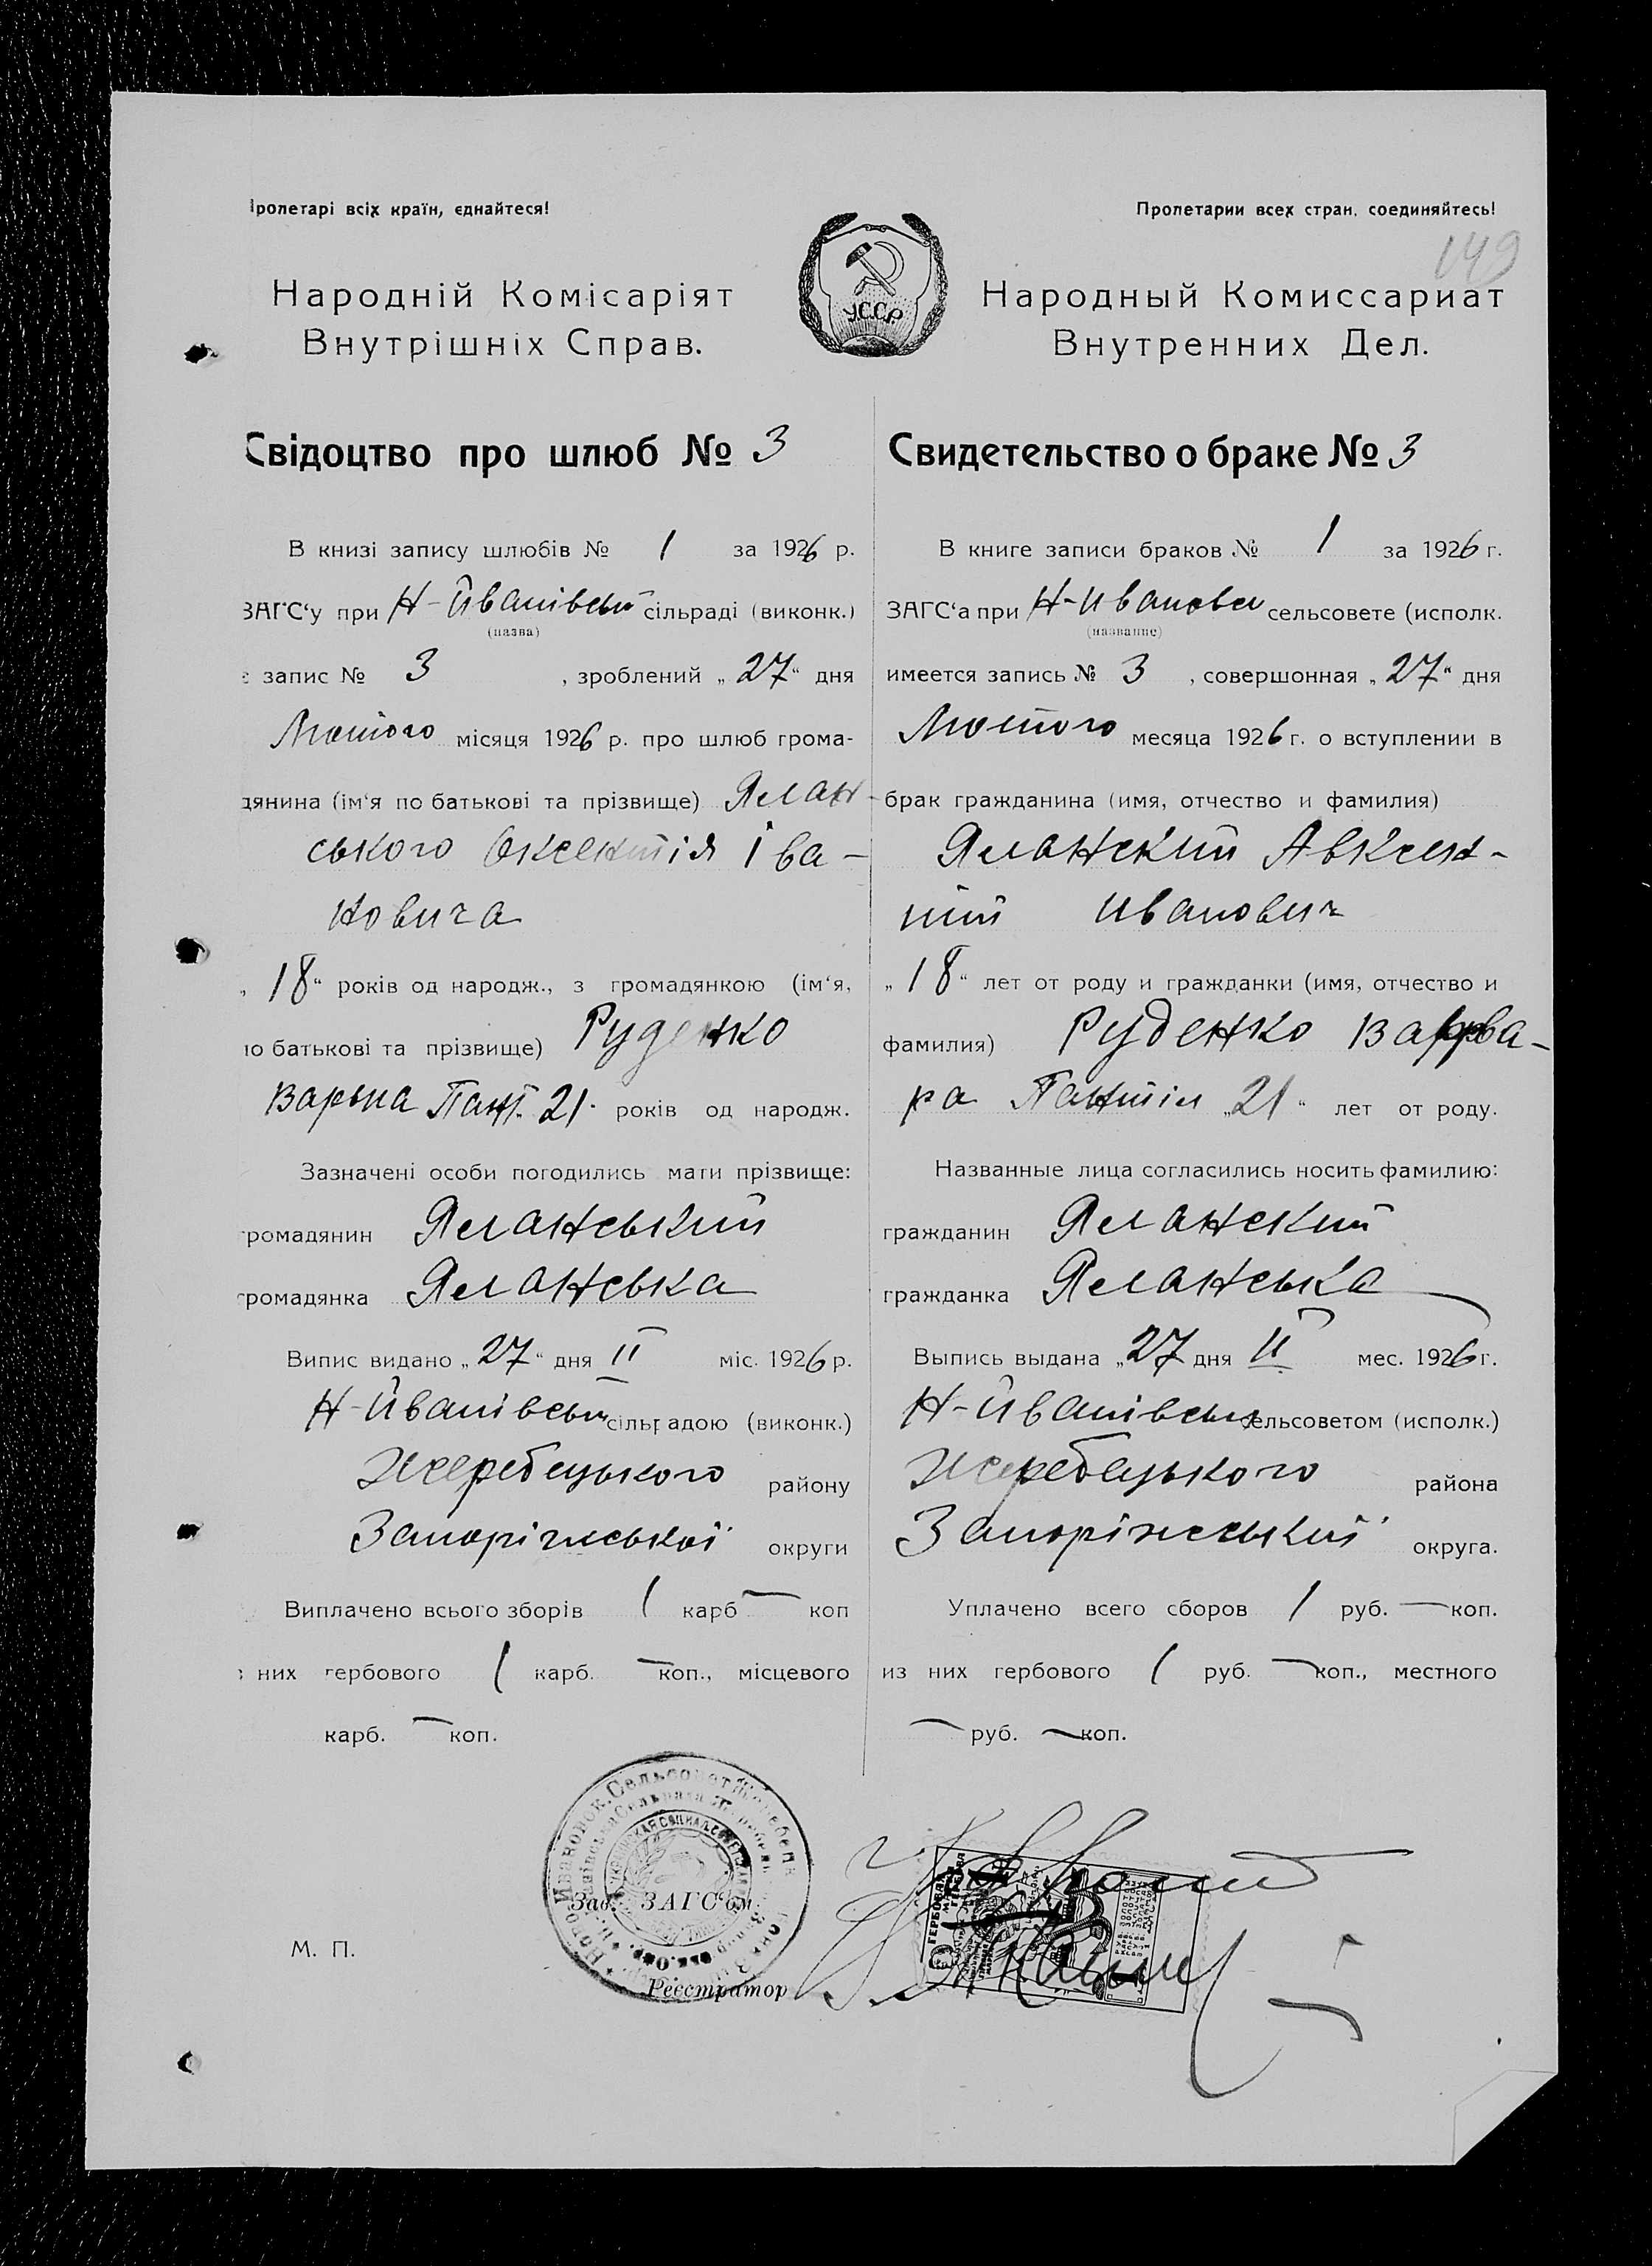 Пролетарі всіх країн, єднайтеся!
Народній Комісаріят
Внутрішніх Справ.
Свідоцтво про шлюб № 3
В книзі запису шлюбів № 1 за 1926 р.
ЗАГС'у при Н-Йванівськ сільраді (виконк.)
(назва)
є запис № 3 , зроблений „ 27 “ дня
Лютого місяця 1926 р. про шлюб грома-
дянина (ім'я по батькові та прізвище) Ялан-
ського Оксентія Іва-
новича
„ 18 “ років од народж., з громадянкою (ім'я,
по батькові та прізвище) Руденко
Варьна Пант. 21 років од народж.
Зазначені особи погодились мати прізвище:
громадянин Яланський
громадянка Яланська
Випис видано „ 27 “ дня II міс. 1926 р.
Н-Йванівськ сільрадою (виконк.)
Жеребецького району
Запоріжської округи
Виплачено всього зборів 1 карб — коп
з них гербового 1 карб. — коп., місцевого
карб. — коп.
У.С.С.Р.
Пролетарии всех стран, соединяйтесь!
149
Народный Комиссариат
Внутренних Дел.
Свидетельство о браке № 3
В книге записи браков № 1 за 1926 г.
ЗАГС'а при Н-Ивановск сельсовете (исполк.
(название)
имеется запись № 3 , совершонная „ 27 “ дня
Лютого месяца 1926 г. о вступлении в
брак гражданина (имя, отчество и фамилия)
Яланский Авксен-
тий Иванович
„ 18 “ лет от роду и гражданки (имя, отчество и
фамилия) Руденко Варва-
ра Пантіл „ 21 “ лет от роду.
Названные лица согласились носить фамилию:
гражданин Яланский
гражданка Яланська
Выпись выдана „ 27 дня II мес. 1926 г.
Н-Йванівськ сельсоветом (исполк.)
Жеребецького района
Запоріжської округа.
Уплачено всего сборов 1 руб. — коп.
из них гербового 1 руб. — коп., местного
— руб. — коп.
Зав. ЗАГС'ом
М. П.
Реєстратор